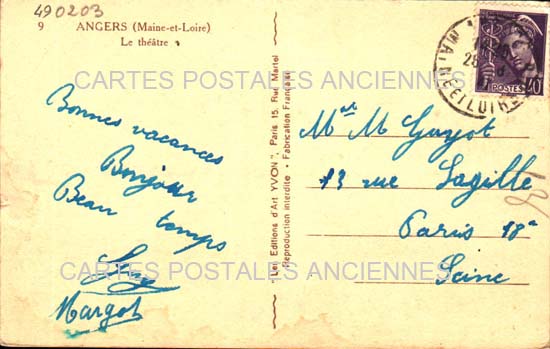 490203
9 ANGERS (Maine-et-Loire)
Le théâtre
CARTES POSTALES ANCIENNES
Bonnes vacances
Bonjour
Beau temps
Margot
"Les Editions d'Art YVON", Paris 15, Rue Martel
Reproduction interdite - Fabrication Française
MAINE ET LOIRE
POSTES 40
Mr M Guyot
13 rue Lagille
Paris 18e
Seine
CARTES POSTALES ANCIENNES